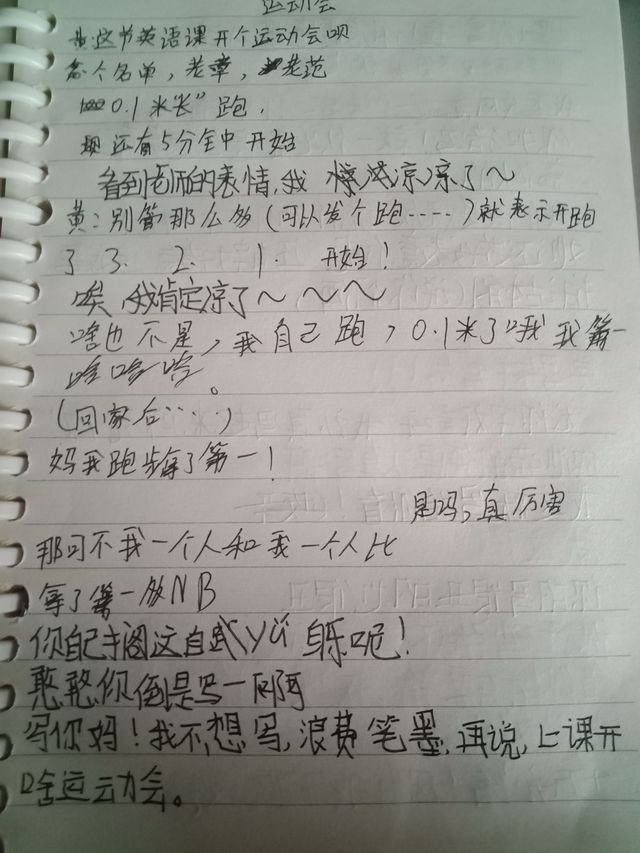 运动会
黄:这节英语课开个运动会呗
名单,老章,老范
0.1米"长"跑,
还有5分全中开始
看到老师的表情,我惊凉凉了~
黄:别第那么多(可以发个跑……)就表示开跑
了 3. 2. 1. 开始!
唉,我肯定凉了~~~
啥也不是,我自己跑,0.1米了哦我第一
哈哈哈。
(回家后……)
妈我跑步拿了第一!
是吗,真厉害
那可不我一个人和我一个人比
拿了第一多NB
你自己手搁这自娱yú自乐呢!
憨憨你倒是写一啊
写你妈!我不想写,浪费笔墨,再说,上课开
啥运动会。